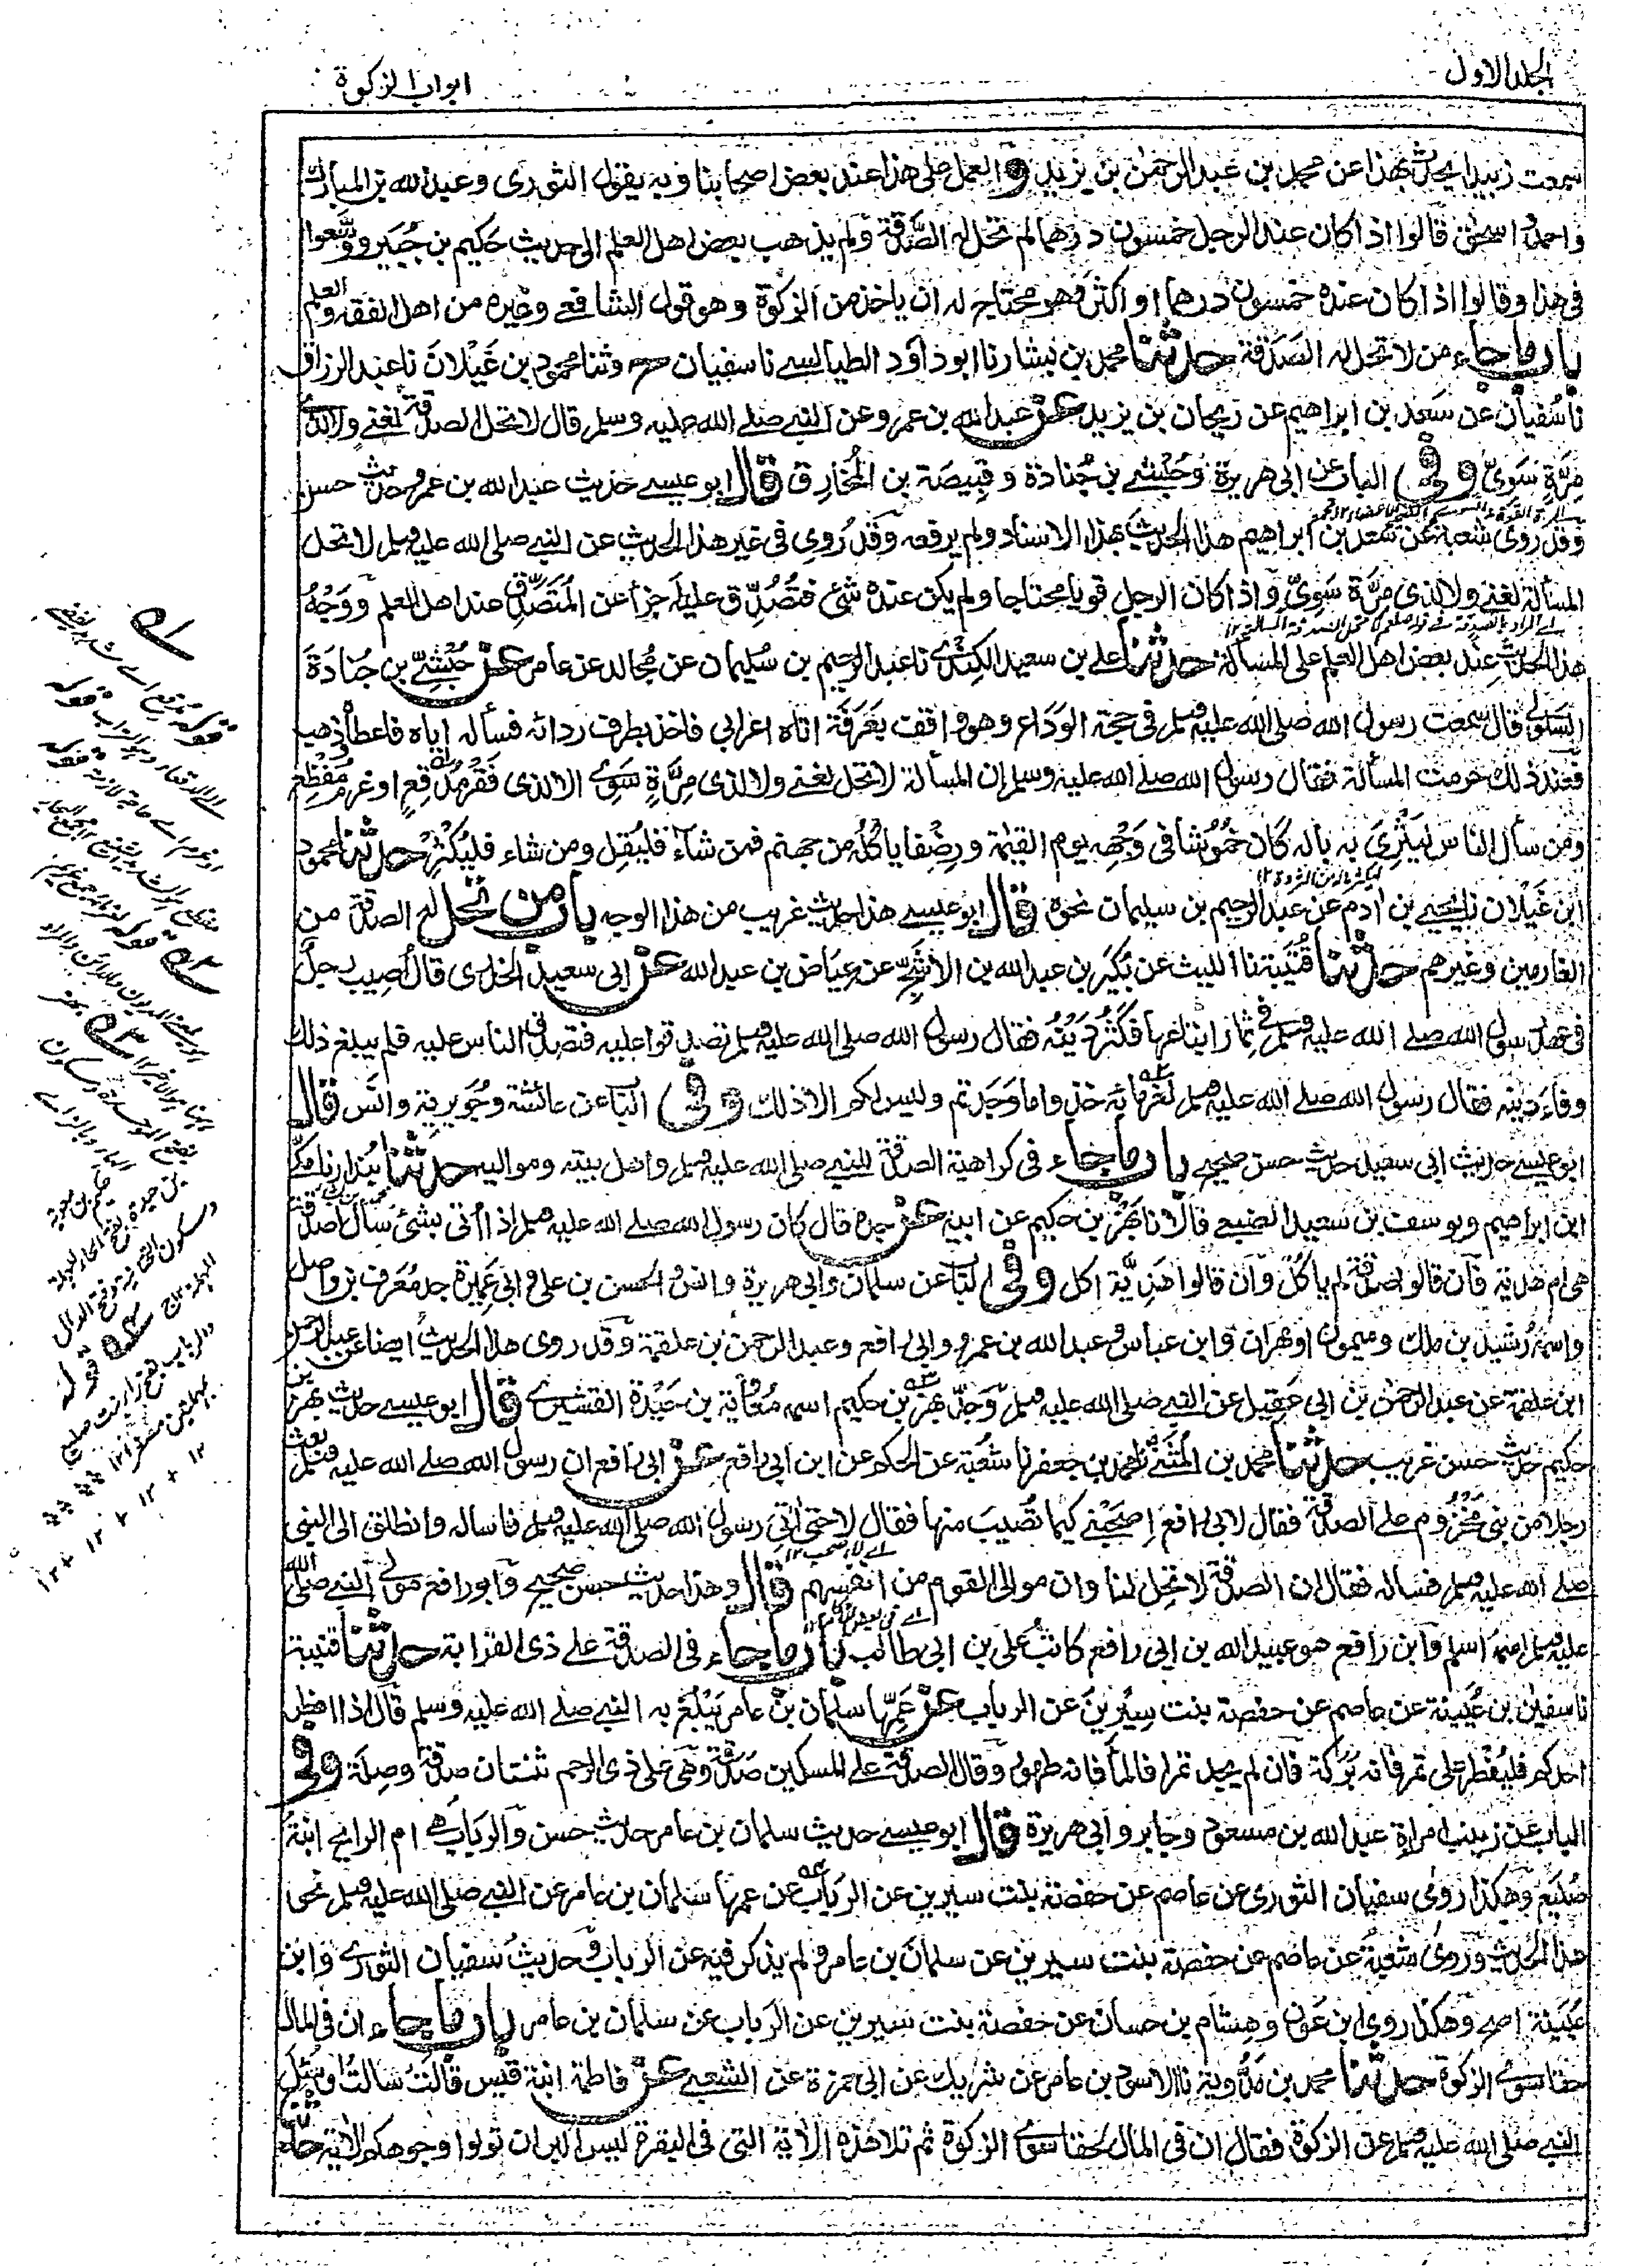 الجلد الاول
ابواب الزكوة
سمعت زبيدا يحدث بهذا عن محمد بن عبد الرحمن بن يزيد والعمل على هذا عند بعض اصحابنا وبه يقول الثوري وعبد الله بن المبارك
واحمد واسحق قالوا اذا كان عند الرجل خمسون درهما لم تحل له الصدقة ولم يذهب بعض اهل العلم الى حديث حكيم بن جبير ووسعوا
في هذا وقالوا اذا كان عنده خمسون درهما او اكثر وهو محتاج له ان ياخذ من الزكوة وهو قول الشافعي وغيره من اهل الفقه والعلم
باب ما جاء من لا تحل له الصدقة حدثنا محمد بن بشار نا ابو داود الطيالسي نا سفيان ح وثنا محمود بن غيلان نا عبد الرزاق
نا سفيان عن سعد بن ابراهيم عن ريحان بن يزيد عن عبد الله بن عمرو عن النبي صلى الله عليه وسلم قال لا تحل الصدقة لغني ولا لذي
مرة سوي وفي الباب عن ابي هريرة وحبشي بن جنادة وقبيصة بن المخارق قال ابو عيسى حديث عبد الله بن عمرو حديث حسن
وقد روى شعبة عن سعد بن ابراهيم هذا الحديث بهذا الاسناد ولم يرفعه وقد روي في غير هذا الحديث عن النبي صلى الله عليه وسلم لا تحل
المسألة لغني ولا لذي مرة سوي واذا كان الرجل قويا محتاجا ولم يكن عنده شئ فتصدق عليه اجزأ عن المتصدق عند اهل العلم ووجه
هذا الحديث عند بعض اهل العلم على المسألة حدثنا علي بن سعيد الكندي نا عبد الرحيم بن سليمان عن مجالد عن عامر عن حبشي بن جنادة
السلولي قال سمعت رسول الله صلى الله عليه وسلم في حجة الوداع وهو واقف بعرفة اتاه اعرابي فاخذ بطرف ردائه فسأله اياه فاعطاه وذهب
فعند ذلك حرمت المسألة فقال رسول الله صلى الله عليه وسلم ان المسألة لا تحل لغني ولا لذي مرة سوي الا لذي فقر مدقع او غرم مفظع
ومن سأل الناس ليثري به ماله كان خموشا في وجهه يوم القيمة ورضفا ياكله من جهنم فمن شاء فليقل ومن شاء فليكثر حدثنا محمود
ابن غيلان نا يحيى بن ادم عن عبد الرحيم بن سليمان نحوه قال ابو عيسى هذا حديث غريب من هذا الوجه باب من تحل له الصدقة من
الغارمين وغيرهم حدثنا قتيبة نا الليث عن بكير بن عبد الله بن الاشج عن عياض بن عبد الله عن ابي سعيد الخدري قال اصيب رجل
في عهد رسول الله صلى الله عليه وسلم في ثمار ابتاعها فكثر دينه فقال رسول الله صلى الله عليه وسلم تصدقوا عليه فتصدق الناس عليه فلم يبلغ ذلك
وفاء دينه فقال رسول الله صلى الله عليه وسلم لغرمائه خذوا ما وجدتم وليس لكم الا ذلك وفي الباب عن عائشة وجويرية وانس قال
ابو عيسى حديث ابي سعيد حديث حسن صحيح باب ما جاء في كراهية الصدقة للنبي صلى الله عليه وسلم واهل بيته ومواليه حدثنا بندار نا مكي
ابن ابراهيم ويوسف بن سعيد الضبعي قالا نا بهز بن حكيم عن ابيه عن جده قال كان رسول الله صلى الله عليه وسلم اذا اتي بشئ سأل اصدقة
هي ام هدية فان قالوا صدقة لم ياكل وان قالوا هدية اكل وفي الباب عن سلمان وابي هريرة وانس والحسن بن علي وابي عميرة جد معرف بن واصل
واسمه رشيد بن ملك وميمون او مهران وابن عباس وعبد الله بن عمرو وابي رافع وعبد الرحمن بن علقمة وقد روى هذا الحديث ايضا عن عبد الرحمن
ابن علقمة عن عبد الرحمن بن ابي عقيل عن النبي صلى الله عليه وسلم وجد بهز بن حكيم اسمه معاوية بن حيدة القشيري قال ابو عيسى حديث بهز بن
حكيم حديث حسن غريب حدثنا محمد بن المثنى نا محمد بن جعفر نا شعبة عن الحكم عن ابن ابي رافع عن ابي رافع ان رسول الله صلى الله عليه وسلم بعث
رجلا من بني مخزوم على الصدقة فقال لابي رافع اصحبني كيما تصيب منها فقال لا حتى اتي رسول الله صلى الله عليه وسلم فاساله وانطلق الى النبي
صلى الله عليه وسلم فساله فقال ان الصدقة لا تحل لنا وان موالي القوم من انفسهم قال وهذا حديث حسن صحيح وابو رافع مولى النبي صلى الله
عليه وسلم اسمه اسلم وابن رافع هو عبيد الله بن ابي رافع كاتب علي بن ابي طالب باب ما جاء في الصدقة على ذي القرابة حدثنا قتيبة
نا سفين بن عيينة عن عاصم عن حفصة بنت سيرين عن الرباب عن عمها سلمان بن عامر يبلغ به النبي صلى الله عليه وسلم قال اذا افطر
احدكم فليفطر على تمر فانه بركة فان لم يجد تمرا فالماء فانه طهور وقال الصدقة على المسكين صدقة وهي على ذي الرحم ثنتان صدقة وصلة وفي
الباب عن زينب امراة عبد الله بن مسعود وجابر وابي هريرة قال ابو عيسى حديث سلمان بن عامر حديث حسن والرباب هي ام الرائح ابنة
صليع وهكذا روى سفيان الثوري عن عاصم عن حفصة بنت سيرين عن الرباب عن عمها سلمان بن عامر عن النبي صلى الله عليه وسلم نحو
هذا الحديث وروى شعبة عن عاصم عن حفصة بنت سيرين عن سلمان بن عامر ولم يذكر فيه عن الرباب وحديث سفيان الثوري وابن
عيينة اصح وهكذا روى ابن عون وهشام بن حسان عن حفصة بنت سيرين عن الرباب عن سلمان بن عامر باب ما جاء ان في المال
حقا سوى الزكوة حدثنا محمد بن مدويه نا الاسود بن عامر عن شريك عن ابي حمزة عن الشعبي عن فاطمة ابنة قيس قالت سالت او سئل
النبي صلى الله عليه وسلم عن الزكوة فقال ان في المال لحقا سوى الزكوة ثم تلا هذه الاية التي في البقرة ليس البر ان تولوا وجوهكم الاية حدثنا